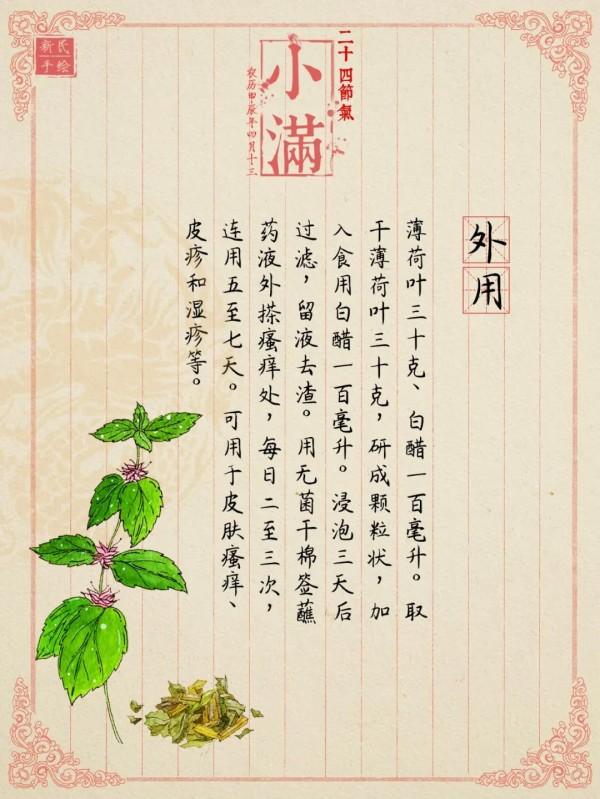 新氏
手绘
二十四節氣
小滿
农历甲辰年四月十三
外用
薄荷叶三十克、白醋一百毫升。取
干薄荷叶三十克，研成颗粒状，加
入食用白醋一百毫升。浸泡三天后
过滤，留液去渣。用无菌干棉签蘸
药液外搽瘙痒处，每日二至三次，
连用五至七天。可用于皮肤瘙痒、
皮疹和湿疹等。